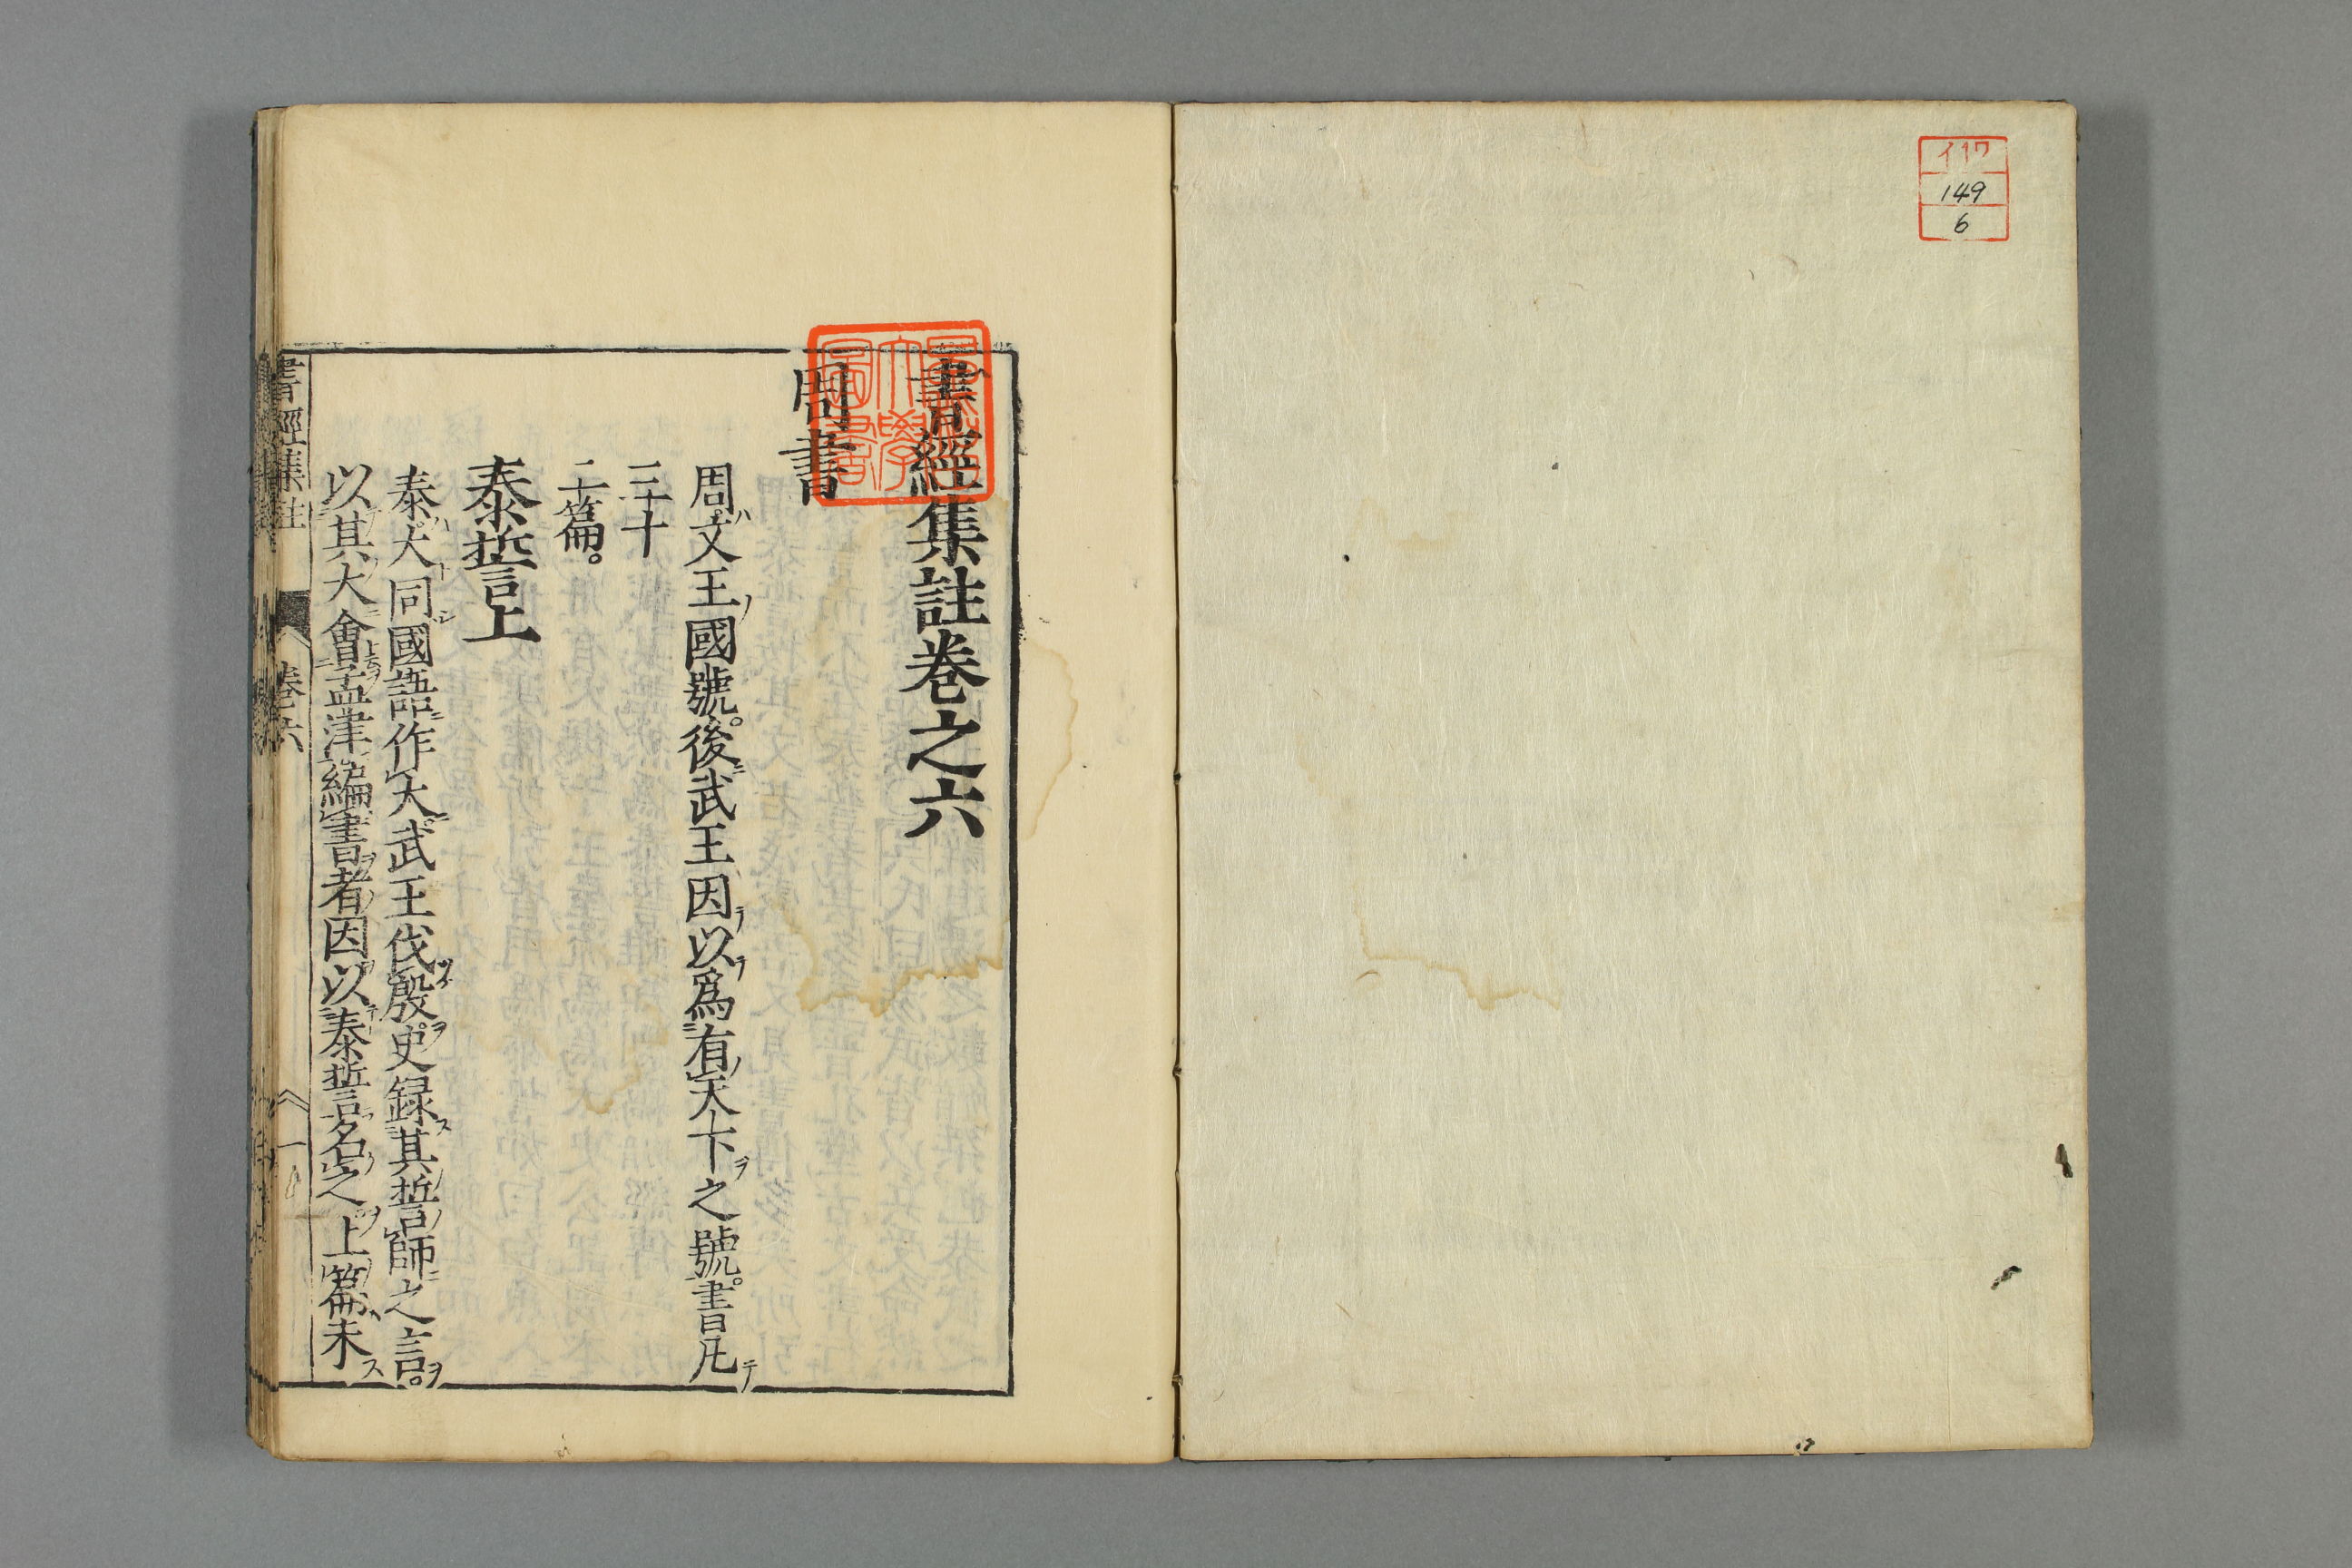 イ17
149
6
書經集註卷之六
周書
周文王國號。後武王因以爲有天下之號。書凡
三十
二篇。
泰誓上
泰大同國語作大武王伐殷史録其誓師之言。
以其大會孟津編書者因以泰誓名之上篇未
書經集註
卷六
一